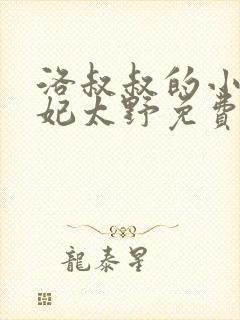 洛叔叔的小
妃太野免費
龍泰星